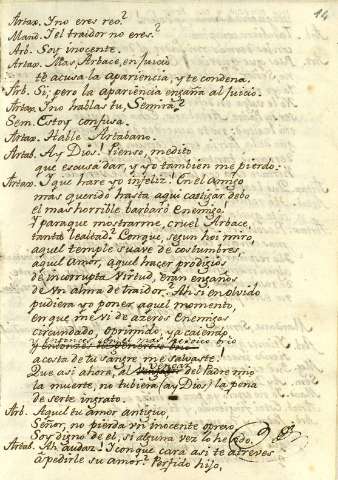 14
Artax. Y no eres reo?
Mand. Y el traidor no eres?
Arb. Soy inocente.
Artax. Mas, Arbace, en juicio
te acusa la apariencia, y te condena.
Arb. Si; pero la apariencia engaña al juicio.
Artax. Y no hablas tu, Semira?
Sem. Estoy confusa.
Artax. Hable Artabano.
Artab. Ay Dios! Pienso, medito
que escusa dar, y yo tambien me pierdo.
Artax. Y que hare yo infeliz! En el Amigo
mas querido hasta aqui castigar debo
el mas horrible barbaro Enemigo.
Y paraque mostrarme, cruel Arbace,
tanta lealtad? Conque, segun hoi miro,
aquel temple suave de costumbres,
aquel Amor, aquel hacer prodigios
de incorrupta virtud, eran engaños
de vn alma de traidor? Ah si en olvido
pudiera yo poner aquel momento,
en que me vi de azeros Enemigos
circundado, oprimido, ya caiendo,
y entonces con el mas heroico brio
acosta de tu sangre me salvaste!
Que asi ahora, al vengar del Padre mio
la muerte, no tubiera (ay Dios) la pena
de serte ingrato.
Arb. Aquel tu amor antiguo,
Señor, no pierda vn inocente opreso
Soy digno de el, si alguna vez lo he sido.
Artab. Ah audaz! Y con que cara asi te atreves
a pedirle su amor? Perfido hijo,